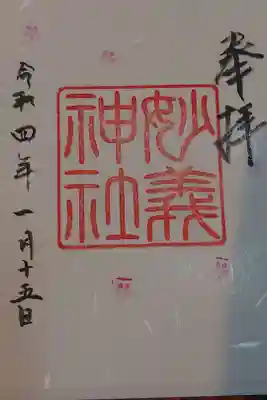 奉拝
妙義
神社
令和四年一月十五日